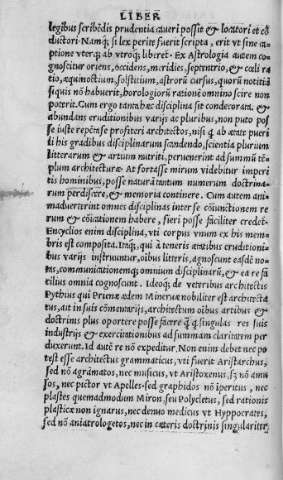 LIBER
legibus scribẽdis prudentia caueri possit et locatori et cõ
ductori. Namq; si lex perite fuerit scripta, erit vt sine ca
ptione vterq; ab vtroq; libret. Ex Astrologia autem co
gnoscitur oriens, occidens, meridies, septentrio, et cæli ra
tio, æquinoctium, solstitium, astrorũ cursus, quorũ notitiã
si quis nõ habuerit, horologiorũ rationẽ omnino scire non
poterit. Cum ergo tanta hæc disciplina sit condecorata, et
abundans eruditionibus varijs ac pluribus, non puto pos
se iuste repẽte se profiteri architectos, nisi q̃ ab ætate pueri
li his gradibus disciplinarum scandendo, scientia plurium
litterarum et artium nutriti, peruenerint ad summũ tẽm
plum architecturæ. At fortasse mirum videbitur imperi
tis hominibus, posse naturã tantum numerum doctrina
rum perdiscere, et memoria continere. Cum autem ani
maduerterint omnes disciplinas inter se cõiunctionem re
rum et cõicationem habere, fieri posse faciliter credet.
Encyclios enim disciplina, vti corpus vnum ex his mem
bris est composita. Itaq;, qui à teneris ætatibus eruditioni
bus varijs instruuntur, oibus litteris, agnoscunt easdẽ no
tas, communicationemq; omnium disciplinarũ, et ea re fa
cilius omnia cognoscunt. Ideoq;, de veteribus architectis
Pythius qui Prienæ ædem Mineruæ nobiliter est architecta
tus, ait in suis cõmentarijs, architectum oibus artibus et
doctrinis plus oportere posse facere q̃ q singulas res suis
industrijs et exercitationibus ad summam claritatem per
duxerunt. Id autẽ re nõ expeditur. Non enim debet nec po
test esse architectus grammaticus, vti fuerit Aristarchus,
sed nõ agrāmatos, nec musicus, vt Aristoxenus, sz nõ amu
sos, nec pictor vt Apelles, sed graphidos nõ iperitus, nec
plastes quemadmodum Miron, seu Polycletus, sed rationis
plasticæ non ignarus, nec denuo medicus vt Hyppocrates,
sed nõ aniatrologetos, nec in cæteris doctrinis singulariter